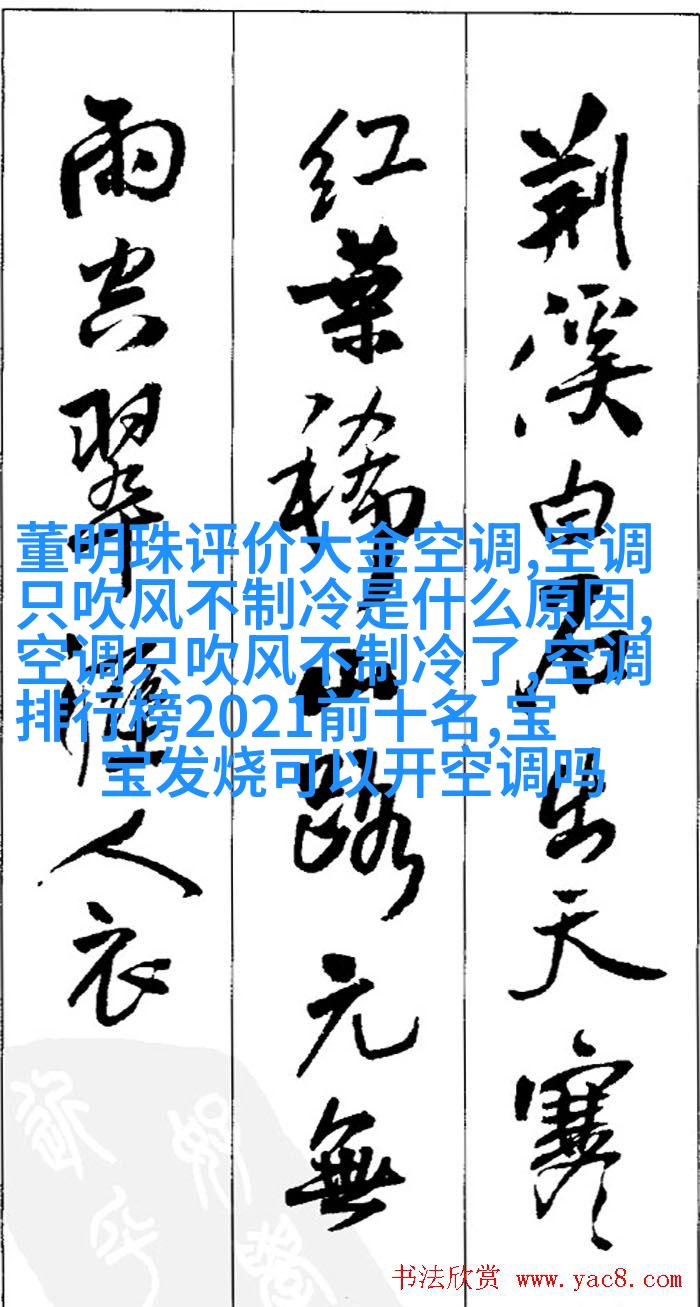 荆溪白石出天寒
红葉稀山路元無
雨空翠濕人衣
董明珠评价大金空调,空调
只吹风不制冷是什么原因,
空调只吹风不制冷了,空调
排行榜2021前十名,宝
宝发烧可以开空调吗
书法欣赏 www.yac8.com